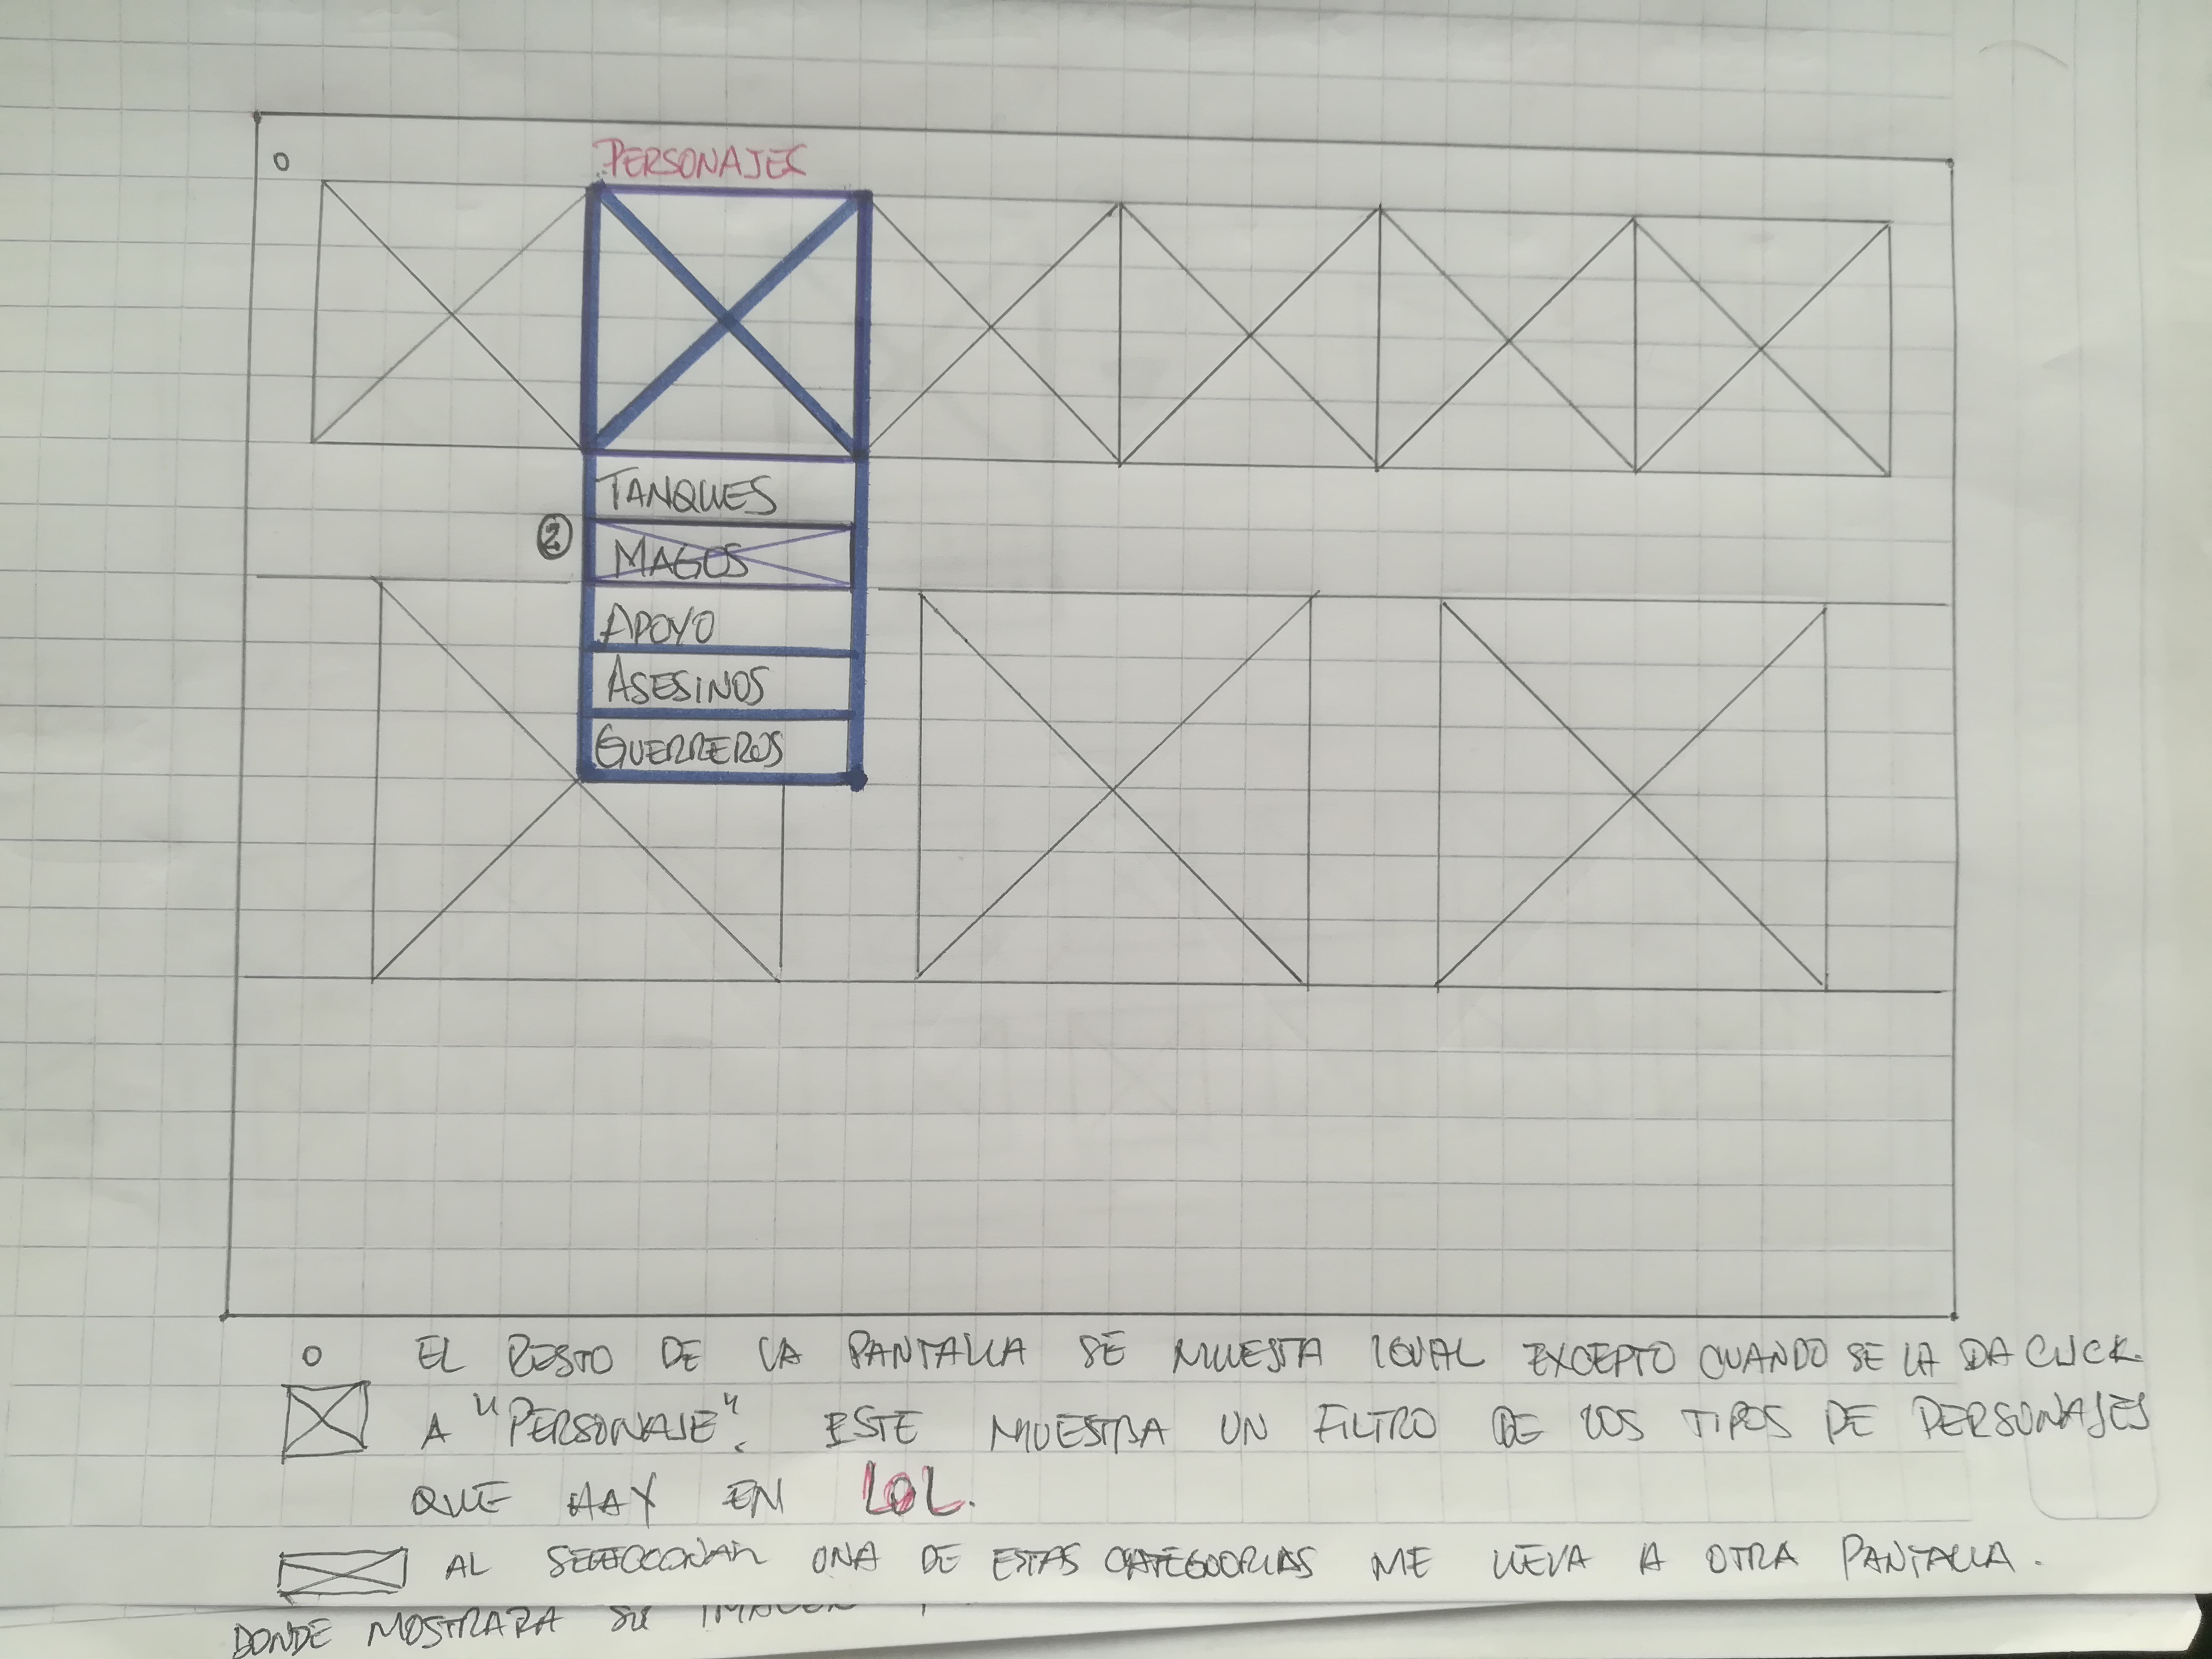 o
PERSONAJES
TANQUES
2
MAGOS
APOYO
ASESINOS
GUERREROS
o EL RESTO DE LA PANTALLA SE MUESTA IGUAL EXCEPTO CUANDO SE LA DA CLICK.
A "PERSONAJE". ESTE MUESTRA UN FILTRO DE LOS TIPOS DE PERSONAJES
QUE HAY EN LOL.
AL SELECCIONAR UNA DE ESTAS CATEGOORIAS ME LLEVA A OTRA PANTALLA.
DONDE MOSTRARA SU